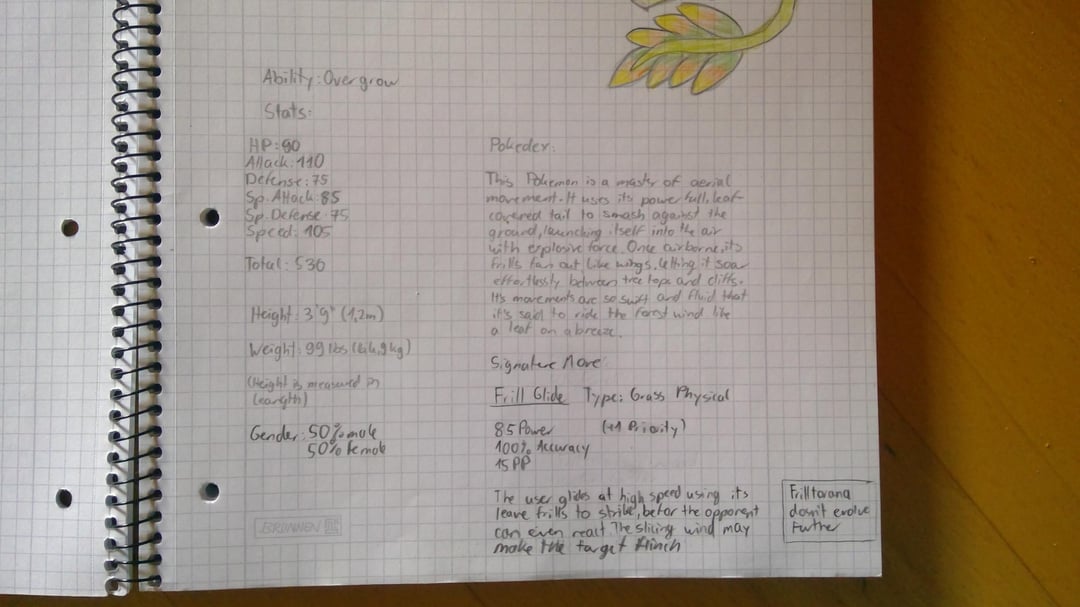 Ability: Overgrow
Stats:
HP: 80
Attack: 110
Defense: 75
Sp. Attack: 85
Sp. Defense: 75
Speed: 105
Total: 530
Height: 3"9" (1,2m)
Weight: 99 lbs (44,9 kg)
(Height is measured in
Gender: 50% male
50% female
BRUNNEN
Pokedex:
This Pokemon is a master of aerial
movement. It uses its powerfull, leaf-
covered tail to smash against the
ground, launching itself into the air
with explosive force. Once airborne, its
frills fan out like wings, letting it soar
effortlessly between tree tops and cliffs.
It's movements are so swift and fluid that
it's said to ride the forest wind like
a leaf on a breeze.
Signature Move:
Frill Glide Type: Grass Physical
85 Power (+1 Priority)
100% Accuracy
15 PP
The user glides at high speed using its
leave frills to strike, befor the opponent
can even react. The slicing wind may
make the target flinch
dosn't evolve
further